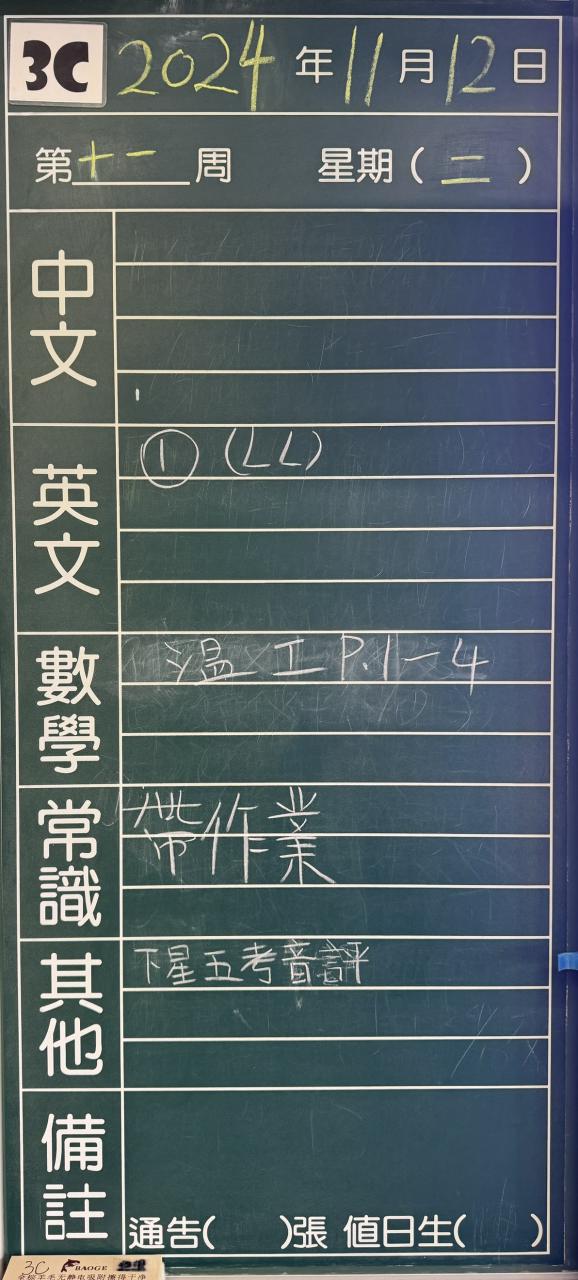 3C 2024年11月12日
第十一周 星期(二)
中文
英文
① (LL)
數學
温工P.1-4
常識
帶作業
其他
下星五考音評
備註
通告( )張 值日生( )
3C BAOGE